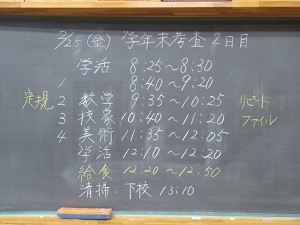 2/25(金) 学年末考査 2日目
学活 8:25～8:30
1 8:40～9:20
定規 2 数学 9:35～10:25 リピート
3 技家 10:40～11:20 ファイル
4 美術 11:35～12:05
学活 12:10～12:20
給食 12:20～12:50
清掃、下校 13:10